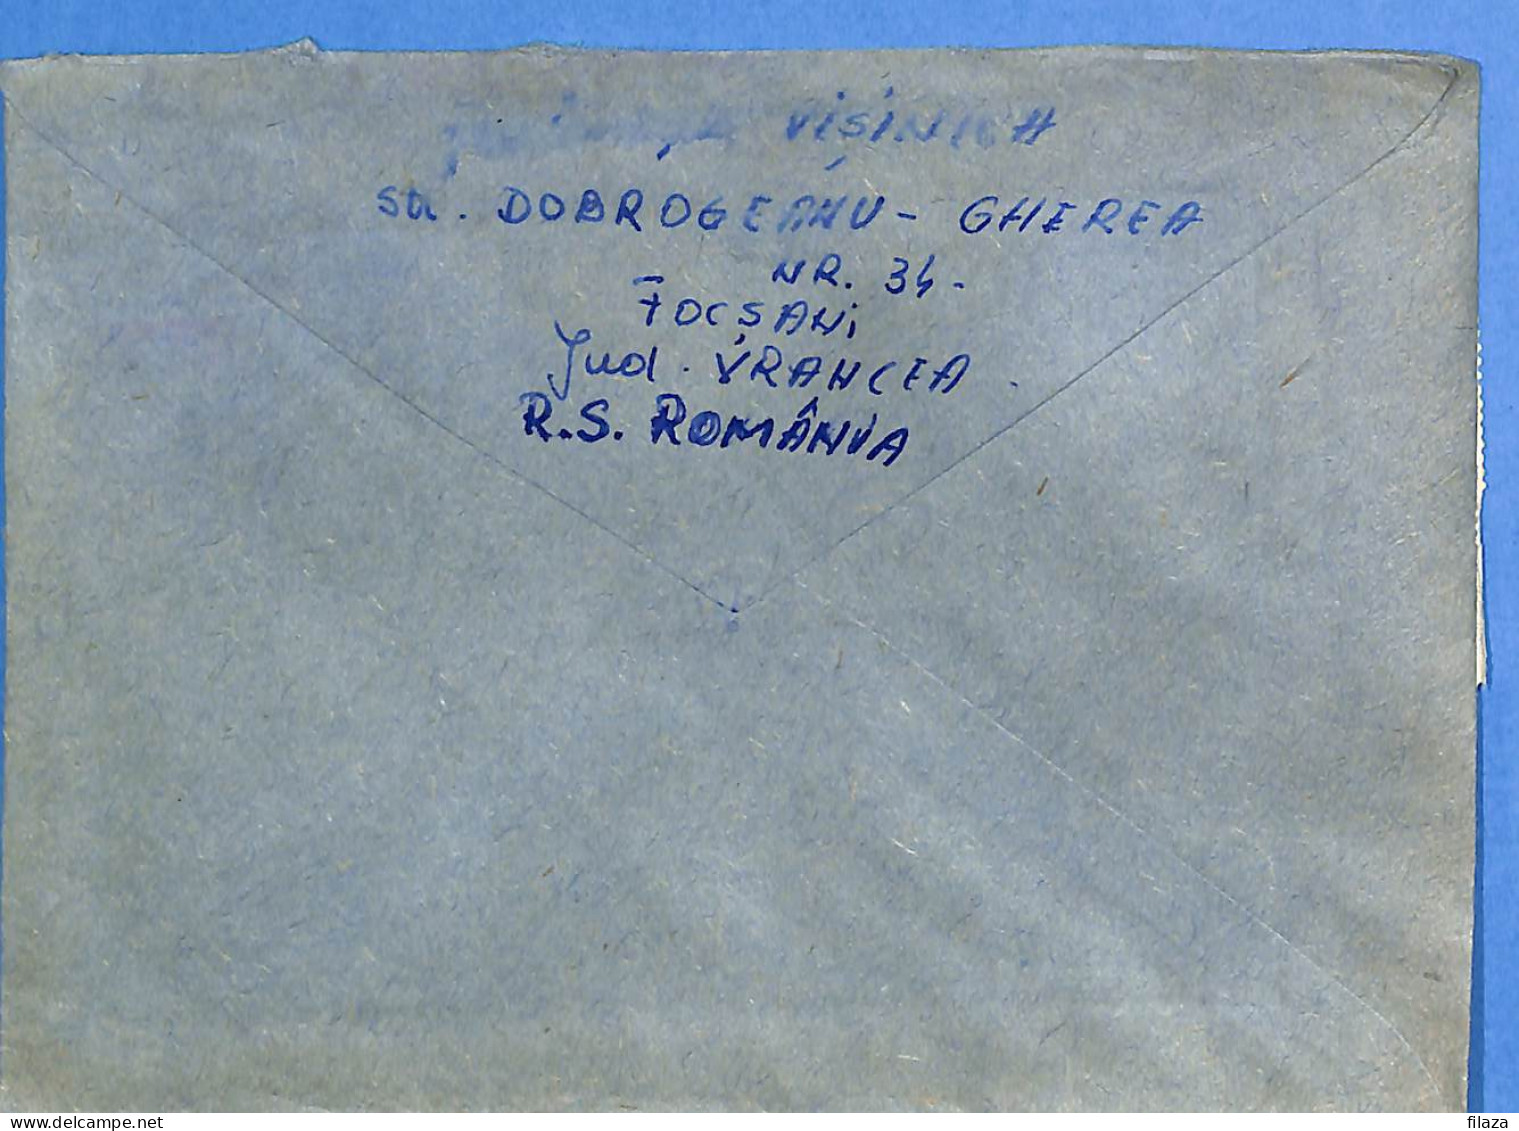 VIȘINICA
str. DOBROGEANU - GHEREA
NR. 34.
FOCȘANI
Jud. VRANCEA.
R.S. ROMÂNIA
filaza